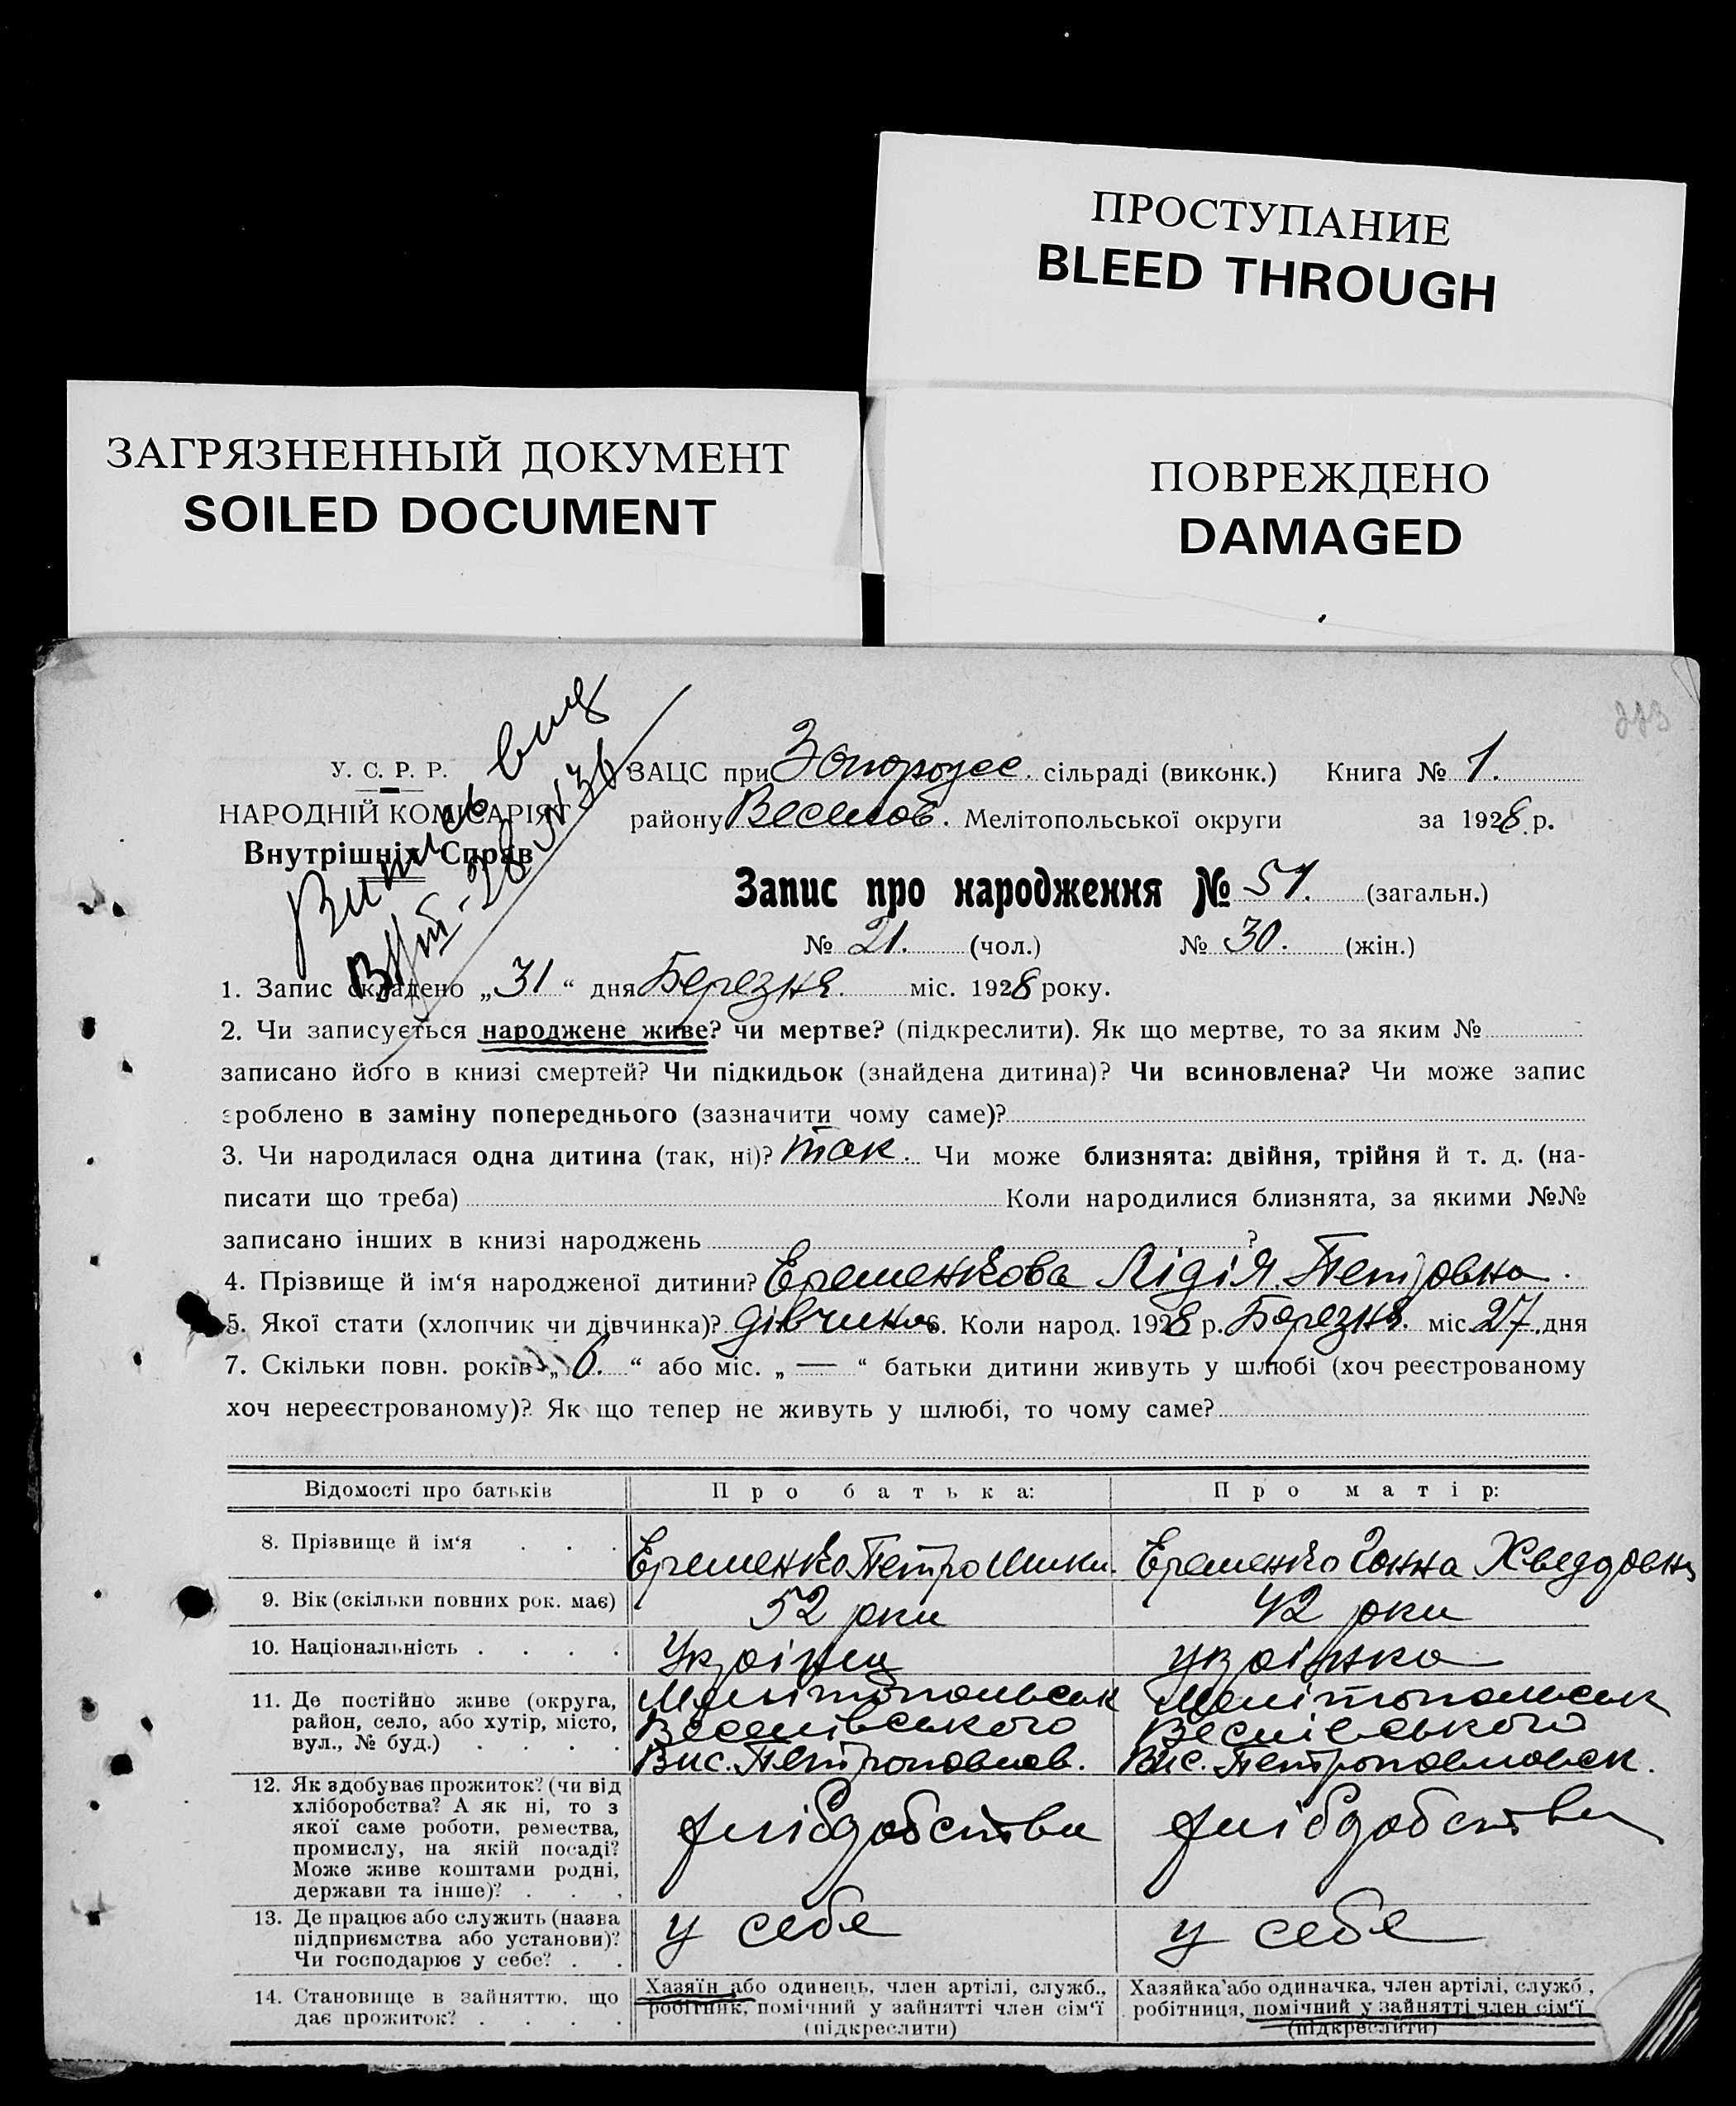 ПРОСТУПАНИЕ
BLEED THROUGH
ЗАГРЯЗНЕННЫЙ ДОКУМЕНТ
SOILED DOCUMENT
ПОВРЕЖДЕНО
DAMAGED
У. С. Р. Р.
НАРОДНІЙ КОМІСАРІЯТ
Внутрішніх Справ
Випись
ЗАЦС при сільраді (виконк.) Книга № 1.
району Веселов. Мелітопольської округи за 1928 р.
Запис про народження № 51. (загальн.)
№ 21. (чол.) № 30. (жін.)
1. Запис складено „31“ дня Березня. міс. 1928 року.
2. Чи записується народжене живе? чи мертве? (підкреслити). Як що мертве, то за яким №
записано його в книзі смертей? Чи підкидьок (знайдена дитина)? Чи всиновлена? Чи може запис
зроблено в заміну попереднього (зазначити чому саме)?
3. Чи народилася одна дитина (так, ні)? так. Чи може близнята: двійня, трійня й т. д. (на-
писати що треба) Коли народилися близнята, за якими №№
записано інших в книзі народжень ?
4. Прізвище й ім‘я народженої дитини? Еременкова Лідія Петровна.
5. Якої стати (хлопчик чи дівчинка)? дівчинка 6. Коли народ. 1928 р. Березня. міс. 27. дня
7. Скільки повн. років „6.“ або міс. „—“ батьки дитини живуть у шлюбі (хоч реєстрованому
хоч нереєстрованому)? Як що тепер не живуть у шлюбі, то чому саме?
Відомості про батьків Про батька: Про матір:
8. Прізвище й ім‘я . . . Еременко Петро Еременко Ганна Хведоровна
9. Вік (скільки повних рок. має) 52 роки 42 роки
10. Національність . . . . Украінец украінка
11. Де постійно живе (округа, Мелітопольськ Мелітопольськ
район, село, або хутір, місто, Веселівського Веселівського
вул., № буд.) . . . . Вис. Петропавлов. Вис. Петропавловск.
12. Як здобуває прожиток? (чи від
хліборобства? А як ні, то з
якої саме роботи, ремества, хлібробства хлібробства
промислу, на якій посаді?
Може живе коштами родні,
держави та інше)? . . .
13. Де працює або служить (назва у себе у себе
підприємства або установи)?
Чи господарює у себе? . .
14. Становище в зайняттю, що
дає прожиток? . . . .
Хазяїн або одинець, член артілі, служб.,
робітник, помічний у зайнятті член сім‘ї
(підкреслити)
Хазяйка або одиначка, член артілі, служб.,
робітниця, помічний у зайнятті член сім‘ї
(підкреслити)